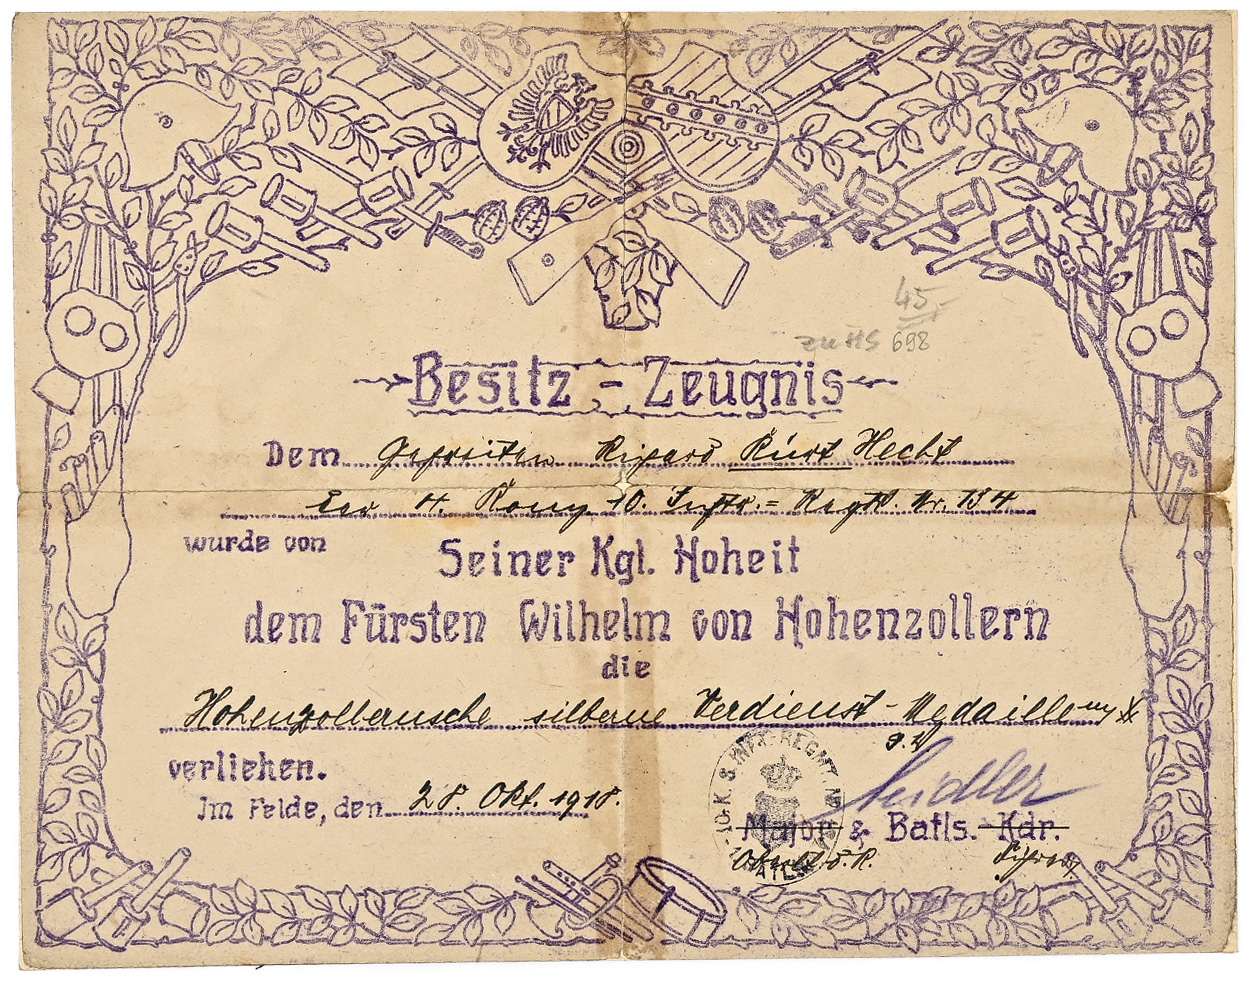 45,-
zu HS 698
Besitz-Zeugnis
Dem Gefreiten Richard Kurt Hecht
der 4. Komp. 10. Inftr.= Regts. Nr. 134
wurde von Seiner Kgl. Hoheit
dem Fürsten Wilhelm von Hohenzollern
die
Hohenzollernsche silberne Verdienst-Medaille m/X
verliehen.
Im Felde, den 28. Okt. 1918.
10. K. S. INFTR. REGMT. NR.
Seidler
Major & Batls.-Kdr.
d. R.